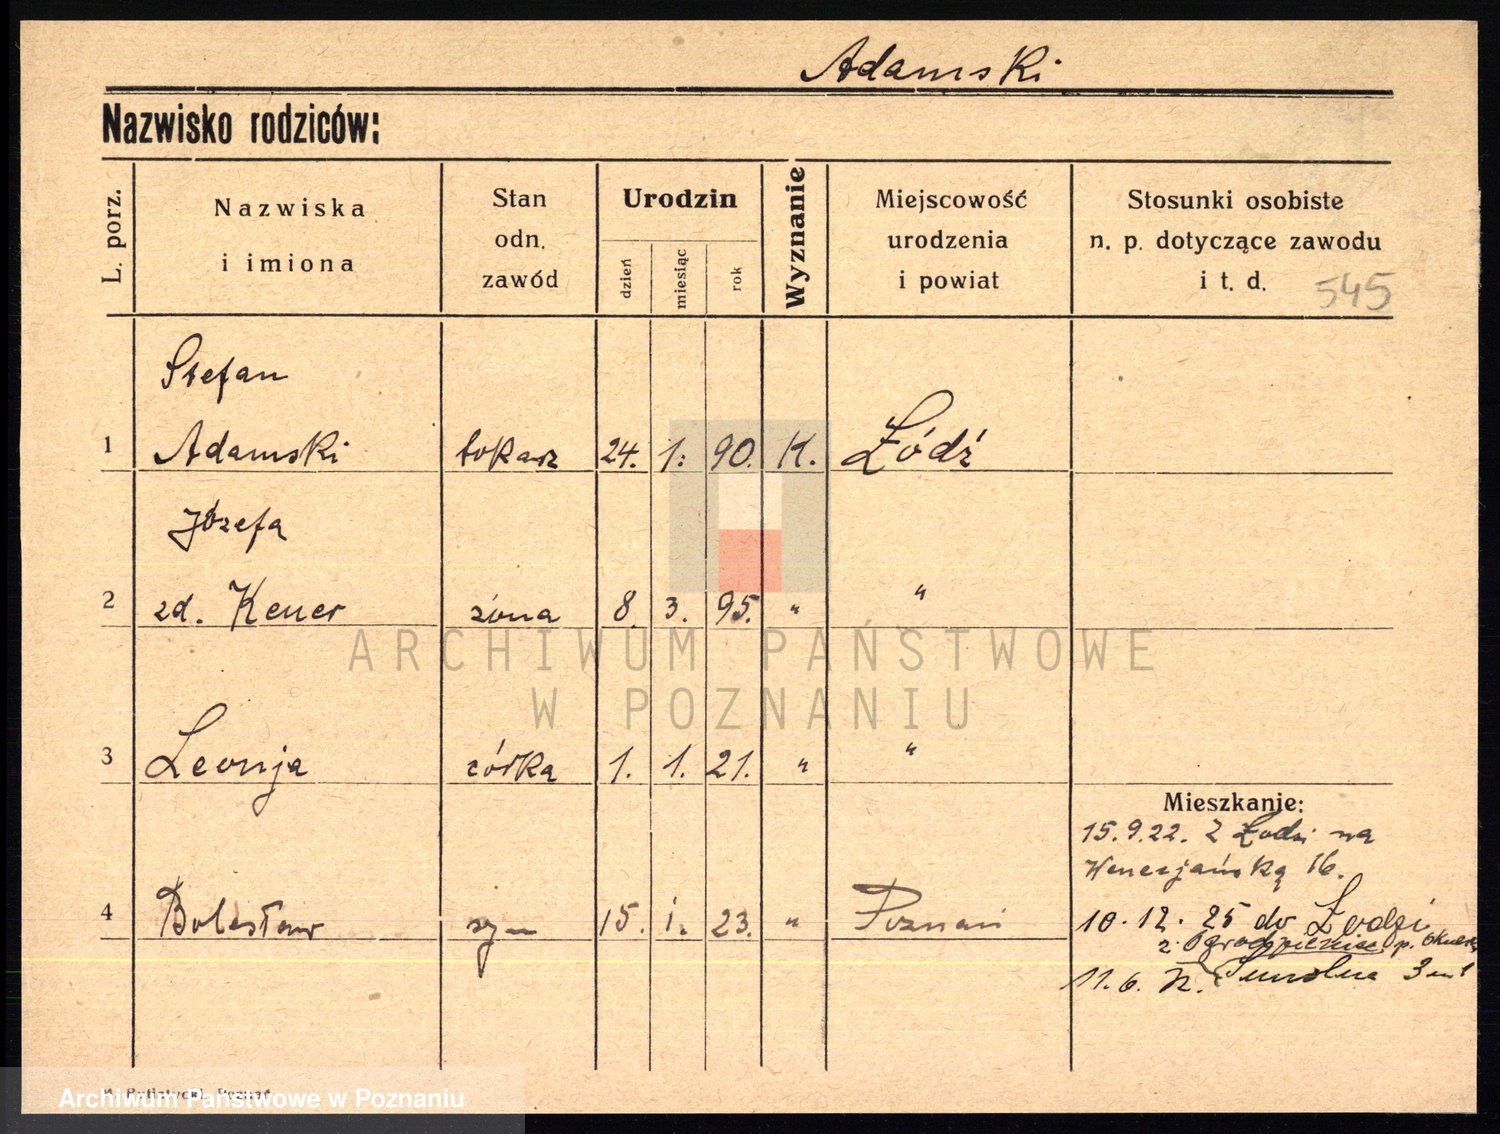 Adamski
Nazwisko rodziców:
L. porz.
Nazwiska
i imiona
Stan
odn.
zawód
Urodzin
dzień
miesiąc
rok
Wyznanie
Miejscowość
urodzenia
i powiat
Stosunki osobiste
n. p. dotyczące zawodu
i t. d.
545
Stefan
1 Adamski tokarz 24. 1. 90. K. Łódź
Józefa
2 zd. Kener żona 8. 3. 95. " "
3 Leonja córka 1. 1. 21. " "
Mieszkanie:
15.9.22. Z Łodzi na
Wenecjańską 16.
4 Bolesław syn 15. 1. 23. " Poznań
10.12.25 do Łodzi
z p.
11.6. 3
ARCHIWUM PAŃSTWOWE
W POZNANIU
Poznań
Archiwum Państwowe w Poznaniu